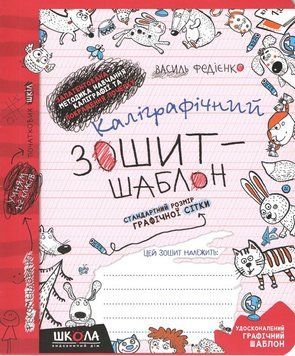 ВАСИЛЬ ФЕДІЄНКО
МЕТОДИКА НАВЧАННЯ
КАЛІГРАФІЇ ТА
Каліграфічний
ЗОШИТ-
ШАБЛОН
СТАНДАРТНИЙ РОЗМІР
ГРАФІЧНОЇ СІТКИ
ЦЕЙ ЗОШИТ НАЛЕЖИТЬ:
ПОЧАТКОВИХ ШКІЛ
ШКОЛА
ВИДАВНИЧИЙ ДІМ
УДОСКОНАЛЕНИЙ
ГРАФІЧНИЙ
ШАБЛОН